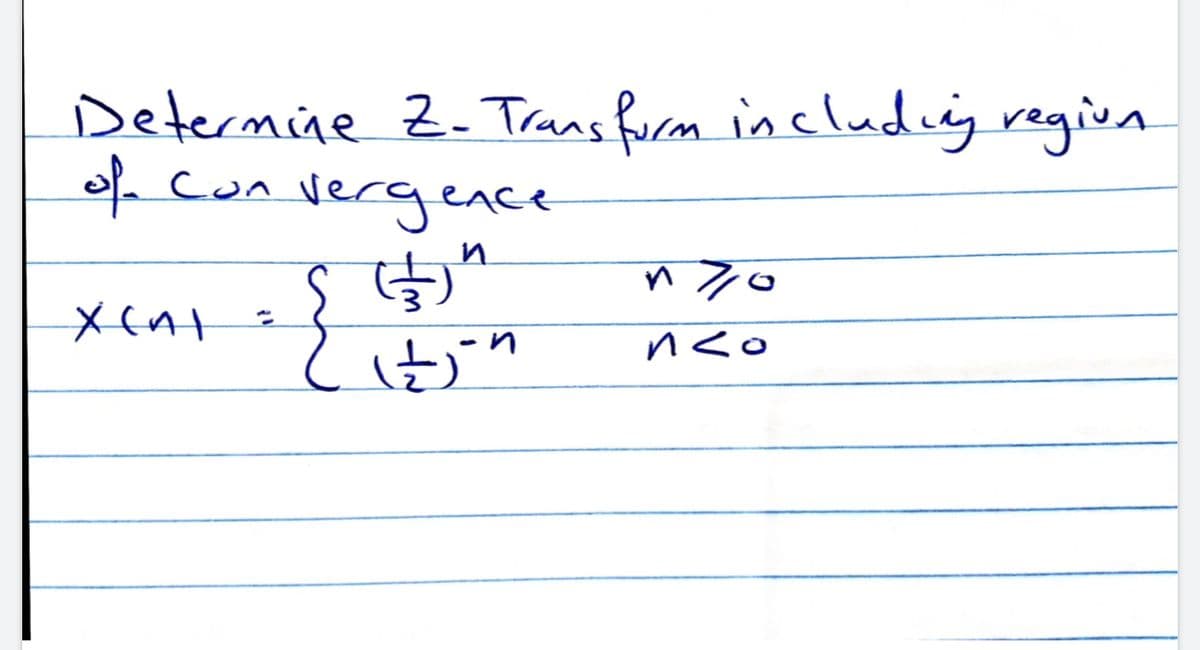 Determine Z-Transform including region
of convergence
x(n) = { (1/3)^n n ≥ 0
(1/2)^-n n < 0